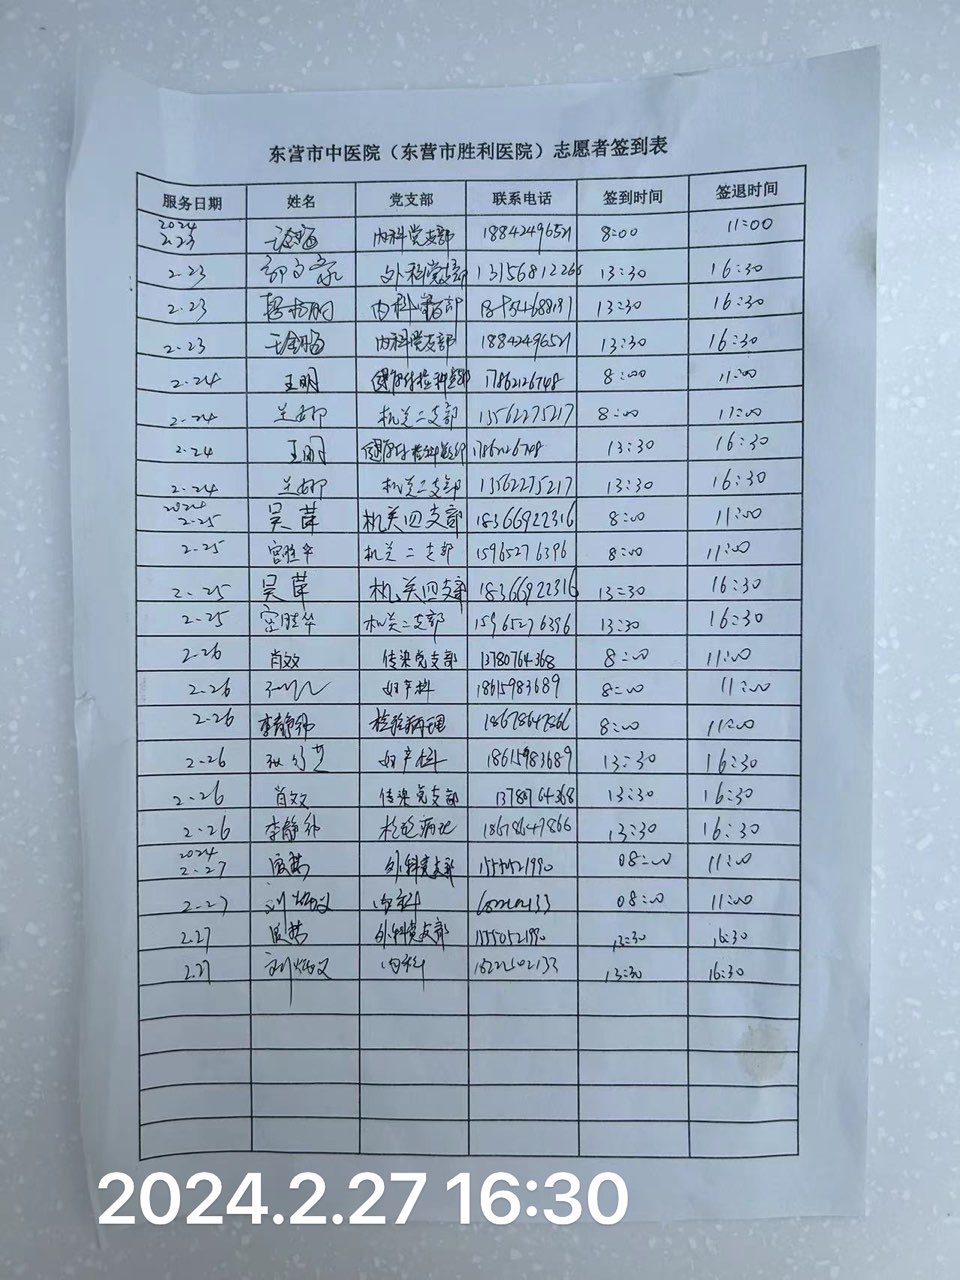 东营市中医院（东营市胜利医院）志愿者签到表
服务日期 姓名 党支部 联系电话 签到时间 签退时间
2024 2.23 内科党支部 18842496521 8:00 11:00
2.23 外科党支部 13156812266 13:30 16:30
2.23 内科党支部 13:30 16:30
2.23 内科党支部 18842496521 13:30 16:30
2.24 王明 17862126748 8:00 11:00
2.24 兰娜 机关二支部 13562275217 8:00 11:00
2.24 王明 13:30 16:30
2.24 兰娜 机关二支部 13562275217 13:30 16:30
2024 2.25 吴苹 机关四支部 18366922316 8:00 11:00
2.25 宫胜华 机关二支部 15965276396 8:00 11:00
2.25 吴苹 机关四支部 18366922316 13:30 16:30
2.25 宫胜华 机关二支部 15965276396 13:30 16:30
2.26 肖效 传染党支部 13780764368 8:00 11:00
2.26 妇产科 18615983689 8:00 11:00
2.26 李静 检验病理 18678647866 8:00 11:00
2.26 妇产科 18615983689 13:30 16:30
2.26 肖效 传染党支部 13780764368 13:30 16:30
2.26 李静 检验病理 18678647866 13:30 16:30
2024 2.27 外科党支部 15550521990 08:00 11:00
2.27 内科 08:00 11:00
2.27 外科党支部 15550521990 13:30 16:30
2.27 内科 13:30 16:30
2024.2.27 16:30